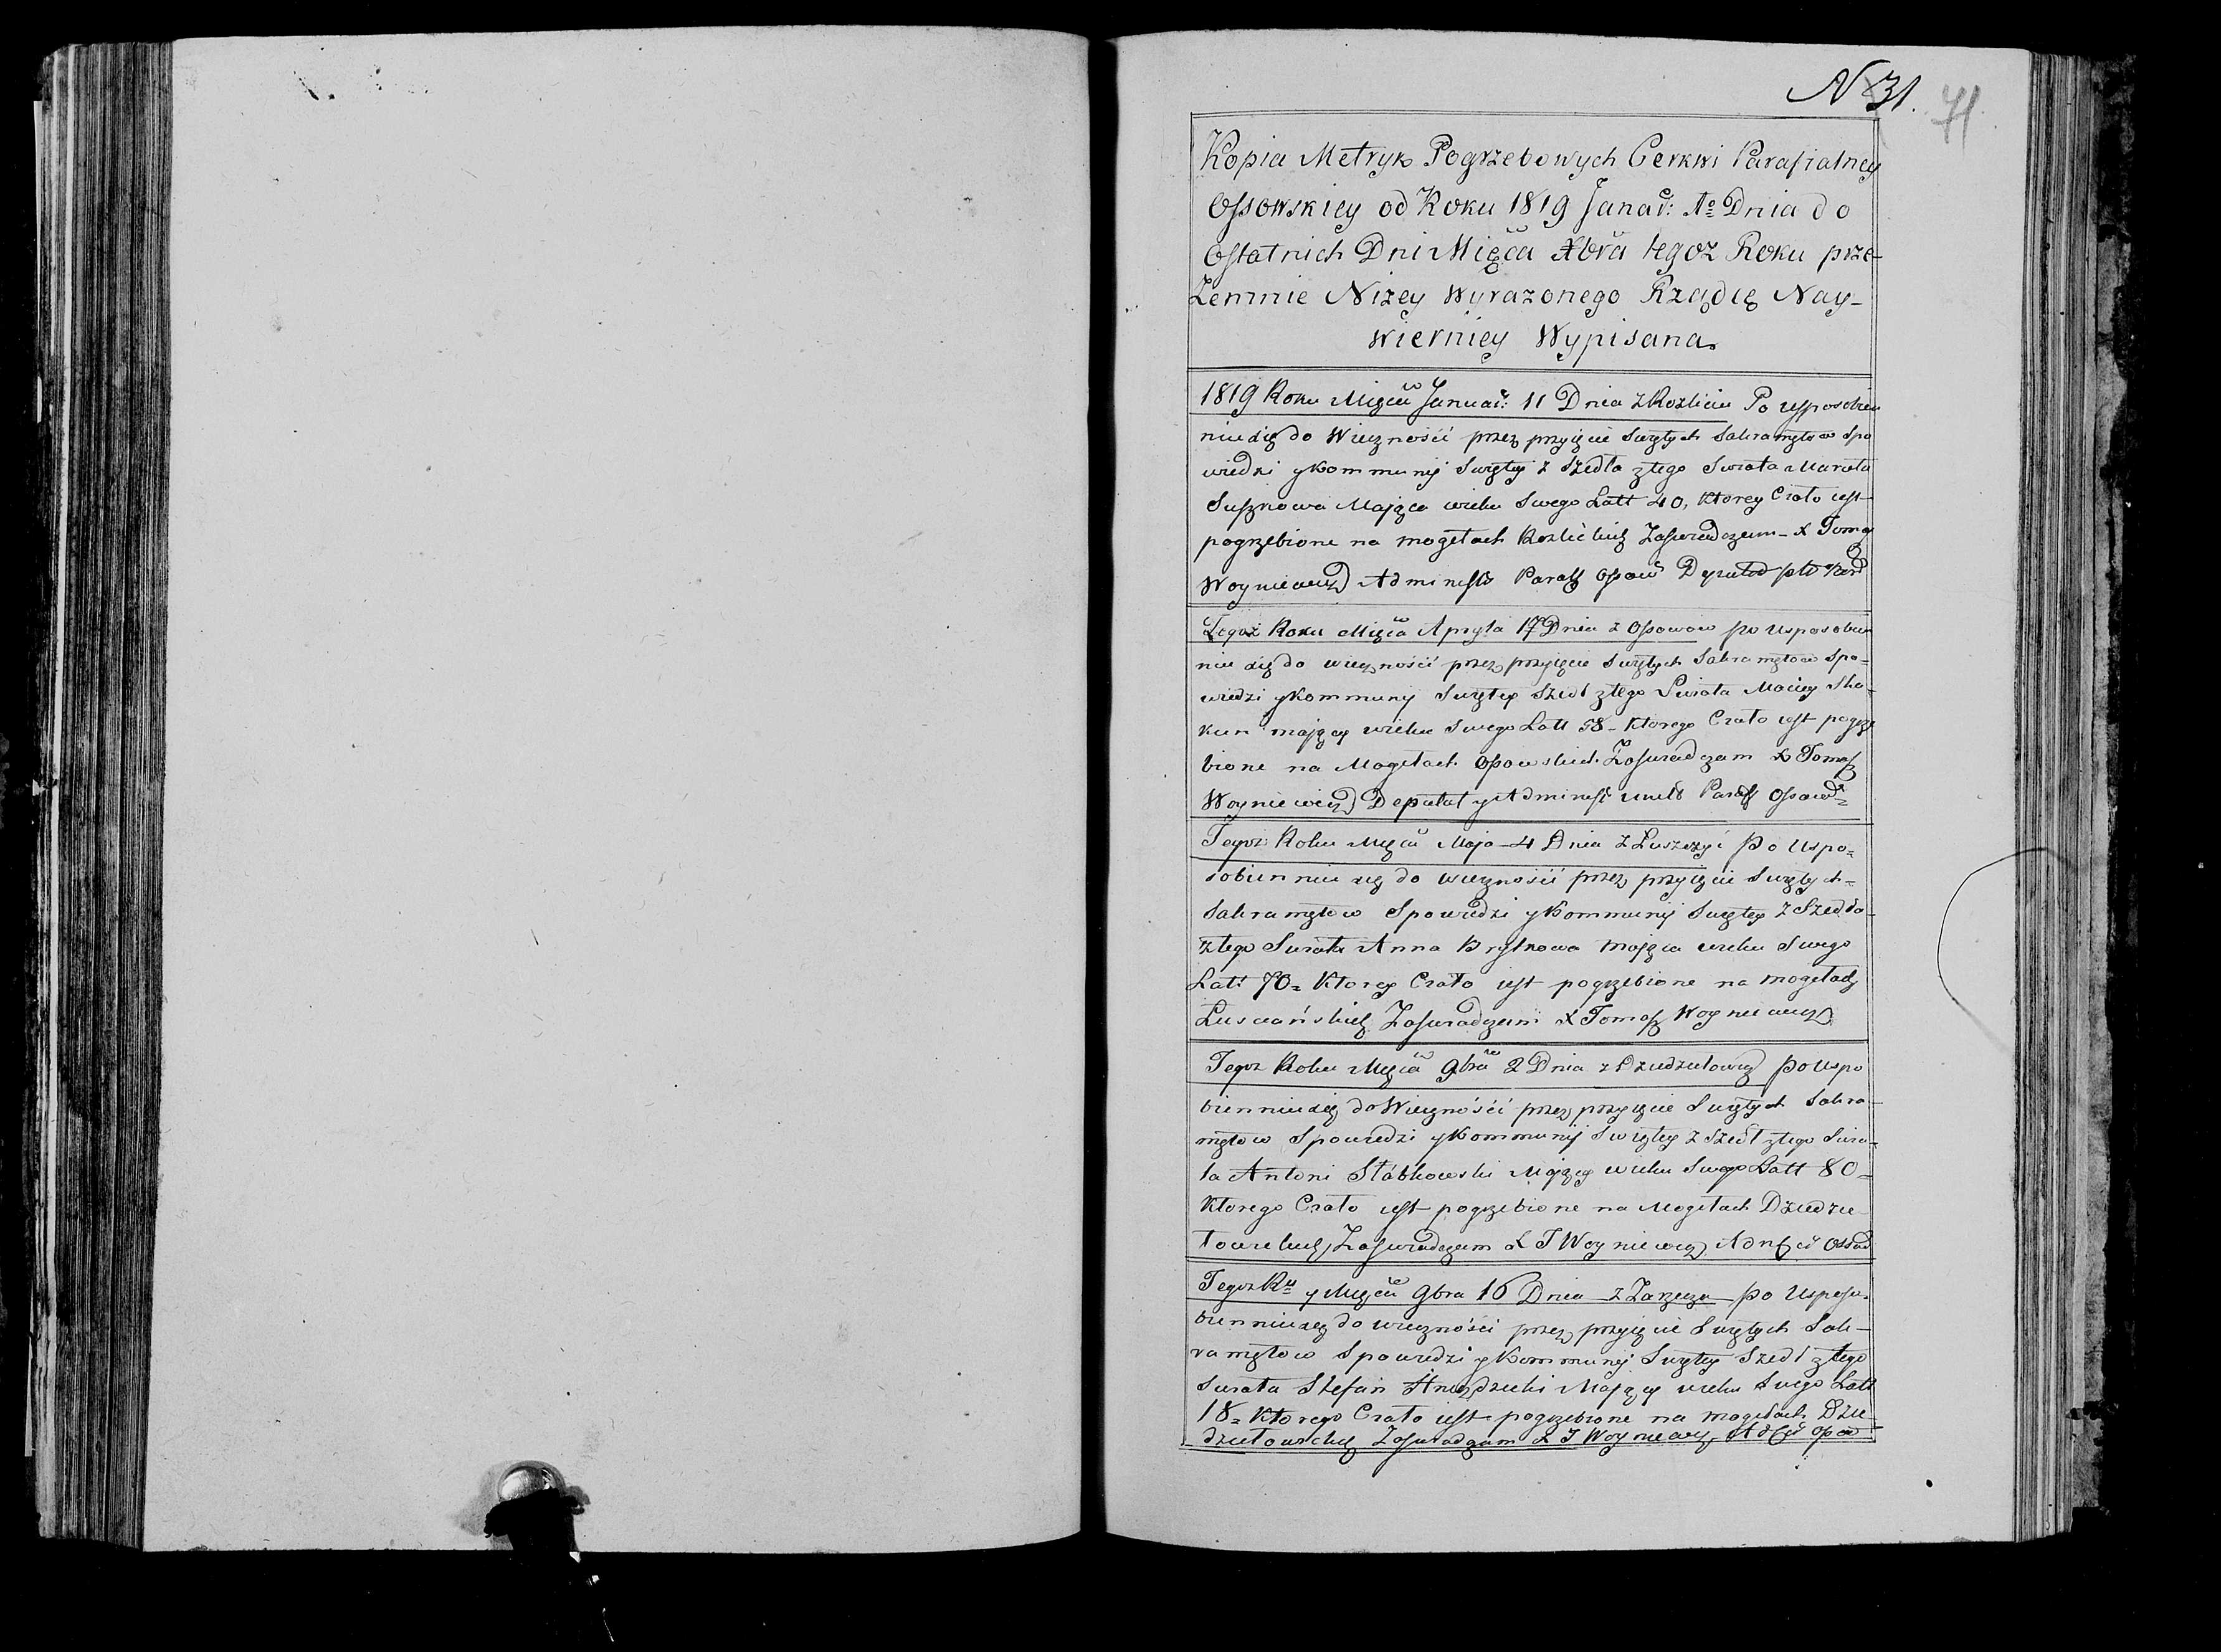 N 31. 71
Kopia Metryk Pogrzebowych Cerkwi Parafialney
Ossowskiey od Roku 1819 Januar: 1o Dnia do
Ostatnich Dni Mięca Xbra tegoz Roku prze-
Zemnie Nizey Wyrazonego Rządcę Nay-
wierniey Wypisana.
1819 Roku Mięca Januar: 11 Dnia z Kozlicia Po Usposobien
niu się do Wiecznosci przez przyięcie Swiętych Sakramętow Spo
wiedzi y Kommunij Swiętey z Szedla z tego Swiata Maruta
Suszkowa Maiąca wieku Swego Latt 40, Ktorey Ciało iest
pogrzebione na mogełach Zaswiadczam X Tomasz
Woyniewicz Administr Paraf Ossow Deputat
Tegoz Roku Mięca Apryla 17 Dnia z Ossowow po Usposobien
niu się do wiecznosci przez przyięcie Swiętych Sakramętow Spo=
wiedzi y Kommunij Swiętey Szedł z tego Swiata Maciey Ska-
kun maiący wieku Swego Latt 58 - Ktorego Ciało iest pogrze
bione na Mogełach Ossowskich Zaswiadczam X Tomasz
Woyniewicz Deputat y Administ Paraf Ossow
Tegoz Roku Mięca Maja 4 Dnia z Luszczyc Po Uspo=
sobienniu się do wiecznosci przez przyięcie Swiętych-
Sakramętow Spowiedzi y Kommunij Swiętey z Szedła-
z tego Swiata Anna Maiąca wieku Swego
Latt 70= Ktorey Ciało iest pogrzebione na mogełach
Zaswiadczam X Tomasz Woyniewicz
Tegoz Roku Mięca 9bra 2 Dnia z Dziedziełowicz po Uspo
bienniu się do Wiecznosci przez przyięcie Swiętych Sakra-
mętow Spowiedzi y Kommunij Swiętey z Szedł z tego Swia=
ta Antoni Słabkowski Maiący wieku Swego Latt 80=
Ktorego Ciało iest pogrzebione na Mogełach Dziedzie
łowickich Zaswiadczam X T Woyniewicz
Tegoz Ru y Mięca 9bra 16 Dnia z Zarzecza po Usposo
bienniu się do wiecznosci przez przyięcie Swiętych Sak-
ramętow Spowiedzi y Kommunij Swiętey Szedł z tego
Swiata Stefan Maiący wieku Swego Latt
18= Ktorego Ciało iest pogrzebione na mogełach Dzie-
dziełowickich Zaswiadczam X T Woyniewicz